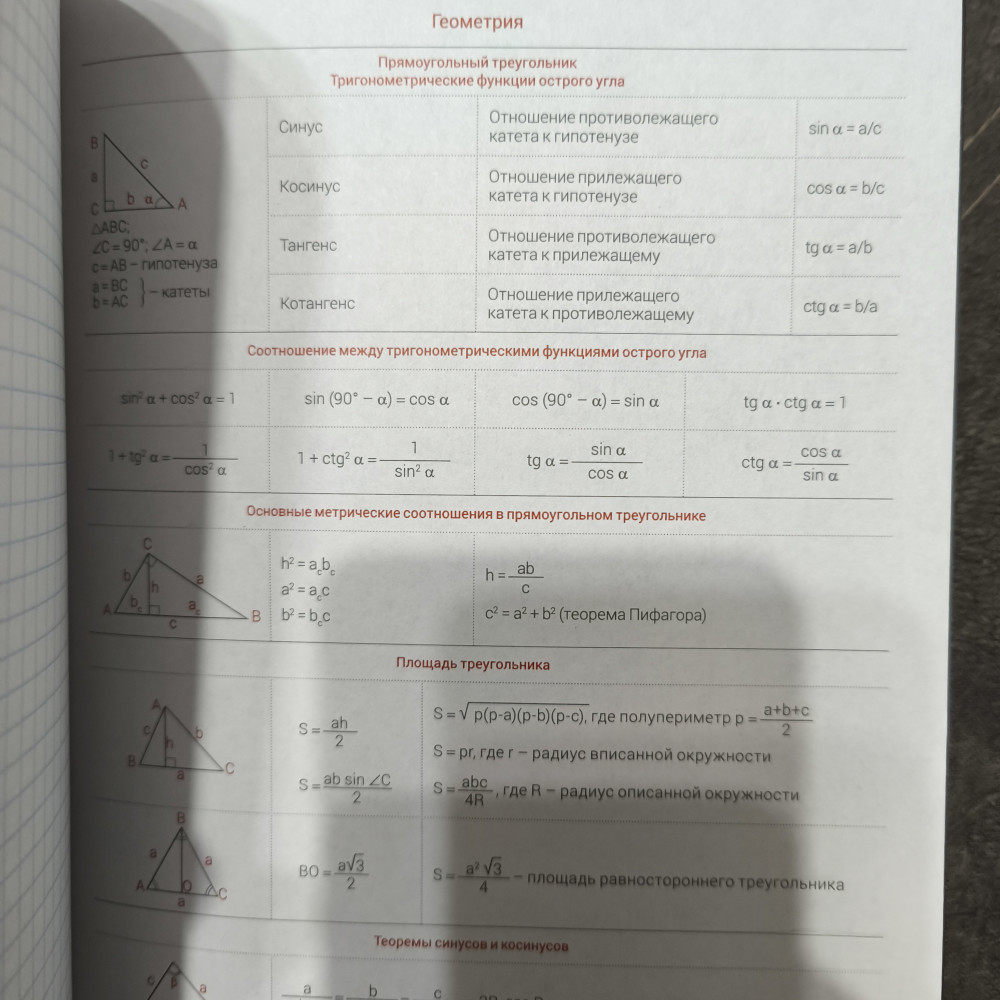 Геометрия
Прямоугольный треугольник
Тригонометрические функции острого угла
B
c
a
b α
C A
△ABC;
∠C = 90°; ∠A = α
c = AB – гипотенуза
a = BC
b = AC } – катеты
Синус
Отношение противолежащего
катета к гипотенузе
sin α = a/c
Косинус
Отношение прилежащего
катета к гипотенузе
cos α = b/c
Тангенс
Отношение противолежащего
катета к прилежащему
tg α = a/b
Котангенс
Отношение прилежащего
катета к противолежащему
ctg α = b/a
Соотношение между тригонометрическими функциями острого угла
sin² α + cos² α = 1
sin (90° – α) = cos α
cos (90° – α) = sin α
tg α · ctg α = 1
1 + tg² α = 1/cos² α
1 + ctg² α = 1/sin² α
tg α = sin α/cos α
ctg α = cos α/sin α
Основные метрические соотношения в прямоугольном треугольнике
C
b h a
A b_c a_c B
c
h² = a_c b_c
a² = a_c c
b² = b_c c
h = ab/c
c² = a² + b² (теорема Пифагора)
Площадь треугольника
A
c h b
B a C
S = ah/2
S = ab sin ∠C/2
S = √p(p-a)(p-b)(p-c), где полупериметр p = a+b+c/2
S = pr, где r – радиус вписанной окружности
S = abc/4R, где R – радиус описанной окружности
B
a a
A O C
a
BO = a√3/2
S = a²√3/4 – площадь равностороннего треугольника
Теоремы синусов и косинусов
c β a
a = b = c